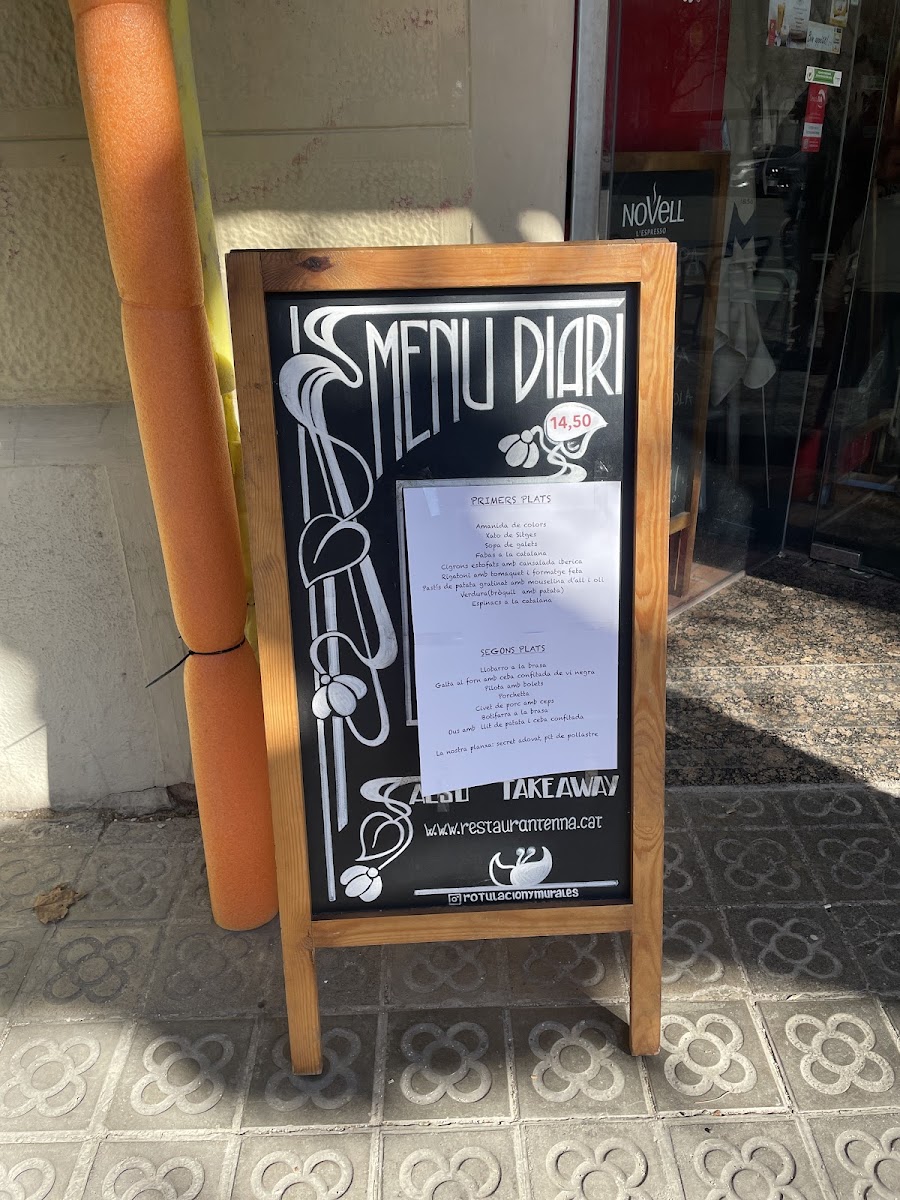 NOVELL
L'ESPRESSO
MENU DIARI
14,50
PRIMERS PLATS
Amanida de colors
Xato de Sitges
Sopa de galets
Fabas a la catalana
Cigrons estofats amb cansalada iberica
Rigatoni amb tomaquet i formatge feta
Pastís de patata gratinat amb mouselina d'all i oli
Verdura(bròquil amb patata)
Espinacs a la catalana
SEGONS PLATS
Llobarro a la brasa
Galta al forn amb ceba confitada de vi negra
Pilota amb bolets
Porchetta
Civet de porc amb ceps
Botifarra a la brasa
Ous amb llit de patata i ceba confitada
La nostra planxa: secret adovat, pit de pollastre
ALSO TAKEAWAY
www.restaurantenna.cat
rotulacionymurales